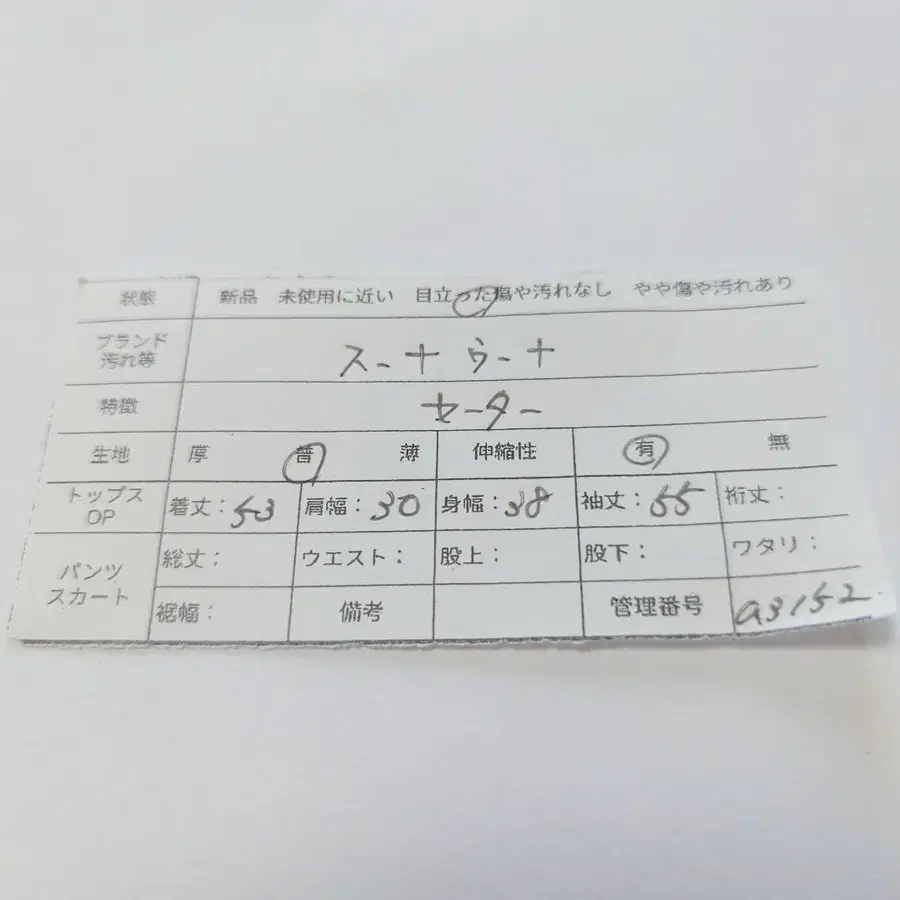 状態 新品 未使用に近い 目立った傷や汚れなし やや傷や汚れあり
ブランド
汚れ等 スーナウーナ
特徴 セーター
生地 厚 普 薄 伸縮性 有 無
トップス
OP 着丈:53 肩幅:30 身幅:38 袖丈:55 裄丈:
パンツ
スカート 総丈: ウエスト: 股上: 股下: ワタリ:
裾幅: 備考 管理番号 a3152